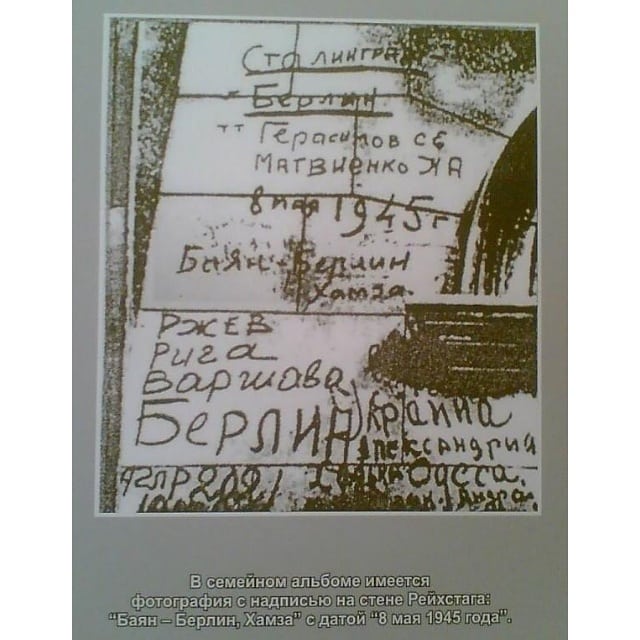 Сталинград
Берлин
тт Герасимов СЕ
Матвиенко НА
8 мая 1945 г
Баян-Берлин
Хамза
Ржев
Рига
Варшава
Берлин
Украина
Александрий
Одесса.
В семейном альбоме имеется
фотография с надписью на стене Рейхстага:
"Баян – Берлин, Хамза" с датой "8 мая 1945 года".